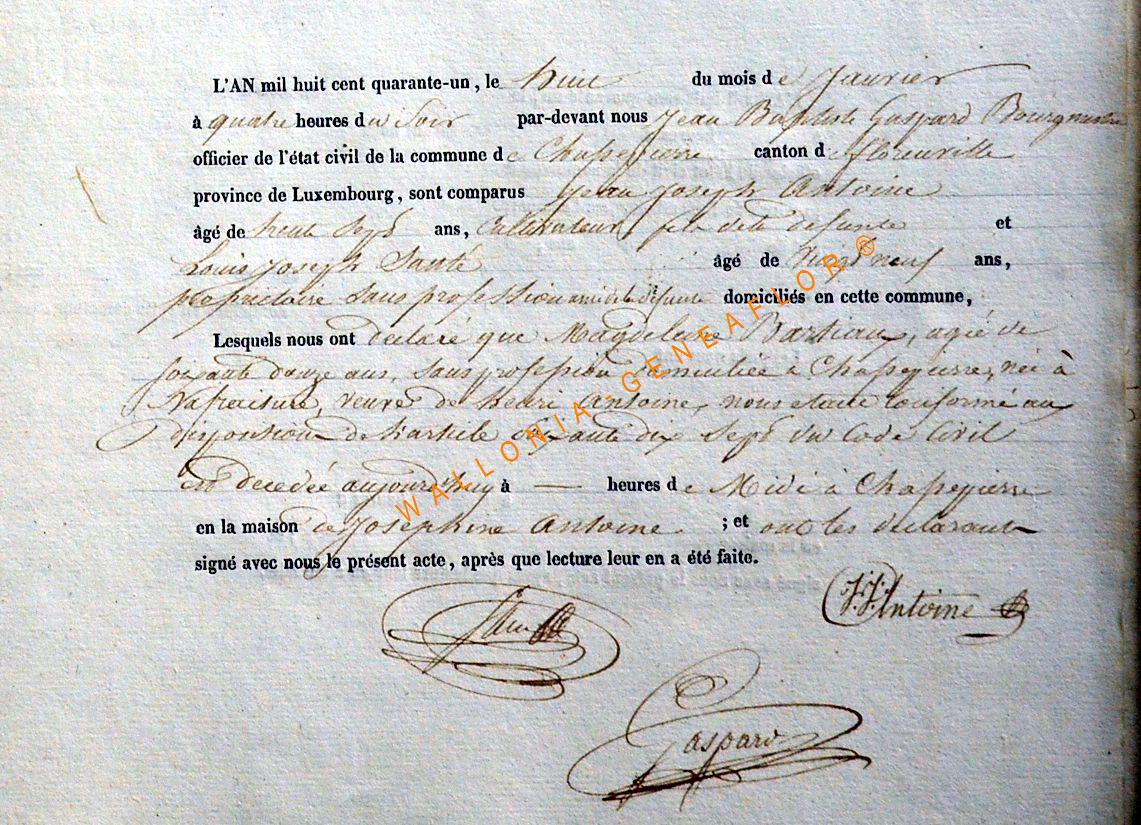 L'AN mil huit cent quarante-un, le huit du mois de Janvier
à quatre heures du Soir par-devant nous Jean Baptiste Gaspard Bourgmestre
officier de l'état civil de la commune de Chapepierre canton de florenville
province de Luxembourg, sont comparus Jean Joseph Antoine
âgé de trente Sept ans, Cultivateur, fils de la défunte et
Louis Joseph Santé âgé de vingt neuf ans,
propriétaire sans profession ami de la défunte domiciliés en cette commune,
Lesquels nous ont déclaré que Magdeleine Bastiaux, agée de
soixante douze ans, sans profession domiciliée à Chapepierre, née à
Nafraiture, veuve de henri Antoine, nous etant conformé aux
disposition de l'article soixante dix Sept du Code Civil
est decedée aujourd'huy à — heures de Midi à Chapepierre
en la maison de Josephine Antoine ; et ont les declarants
signé avec nous le présent acte, après que lecture leur en a été faite.
J. J. Antoine
Gaspard
WALLONIA-GENEAFLOR ®